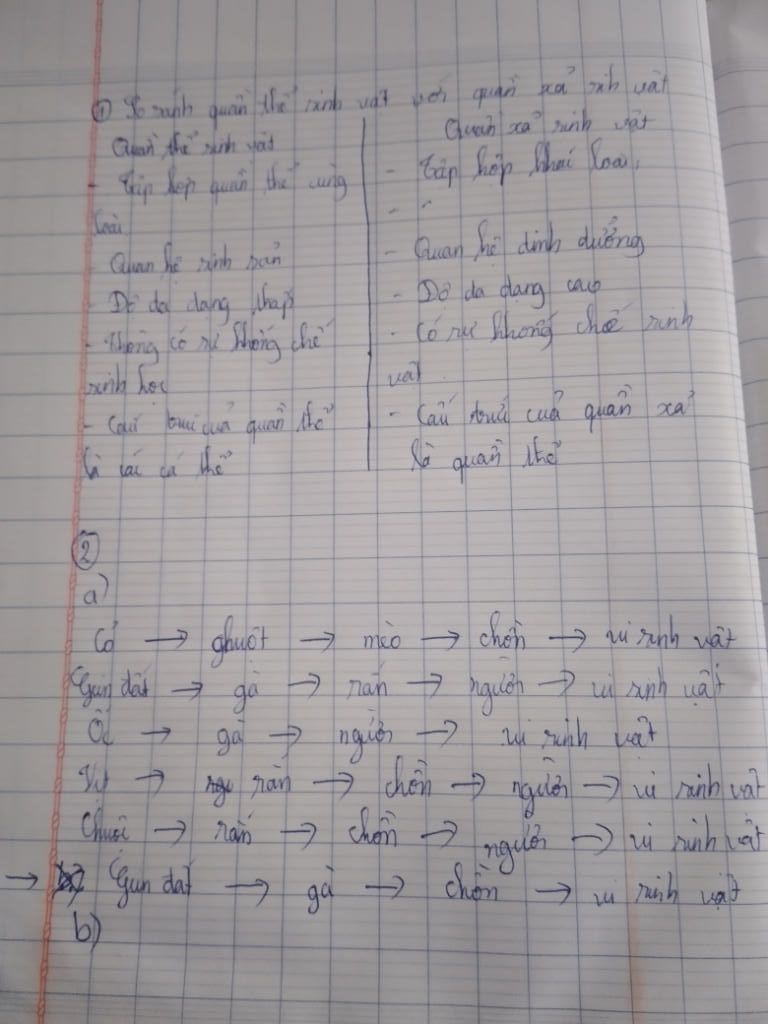 ① So sánh quần thể sinh vật với quần xả sinh vật
Quần thể sinh vật
- Tập hợp quần thể cùng
loài
- Quan hệ sinh sản
- Độ đa dạng thấp
- Không có sự khống chế
sinh học
- Cấu trúc của quần thể
là các cá thể
Quần xả sinh vật
- Tập hợp khác loài,
- Quan hệ dinh dưởng
- Độ đa dạng cao
- Có sự khống chế sinh
vật
- Cấu trúc của quần xả
là quần thể
②
a)
Cỏ → ghuột → mèo → chồn → vi sinh vật
Giun đất → gà → rắn → người → vi sinh vật
Ốc → gà → người → vi sinh vật
Vịt → rắn → chồn → người → vi sinh vật
Chuột → rắn → chồn → người → vi sinh vật
→ Giun đất → gà → chồn → vi sinh vật
b)